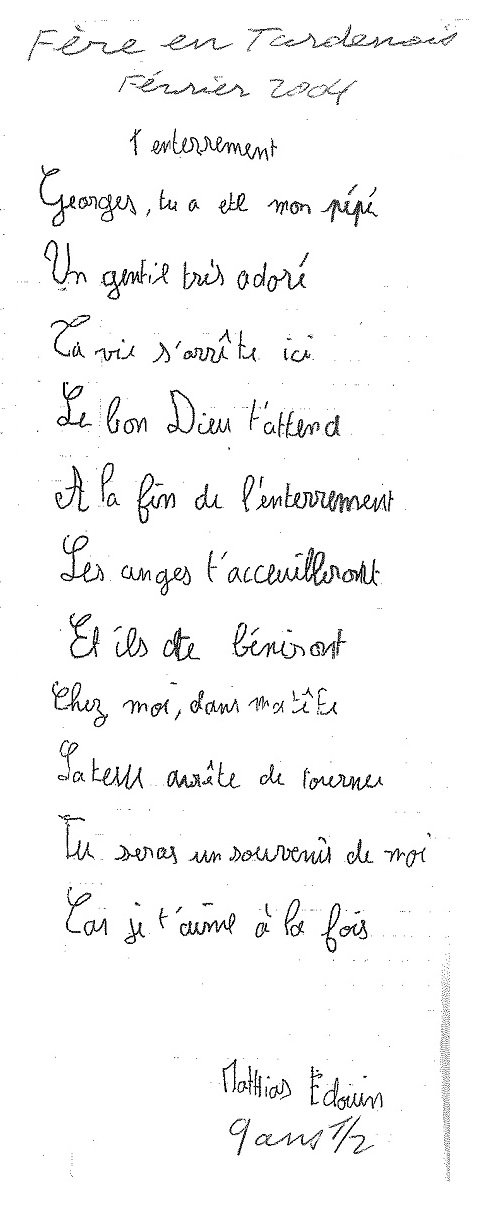 Fère en Tardenois
Février 2004
l'enterrement
Georges, tu a été mon pépé
Un gentil très adoré
Ta vie s'arrête ici
Le bon Dieu t'attend
A la fin de l'enterrement
Les anges t'acceuilleront
Et ils te béniront
Chez moi, dans ma tête
La terre arrête de tourner
Tu seras un souvenir de moi
Car je t'aime à la fois
Mathias Edouin
9 ans 1/2